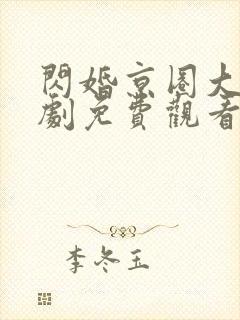 閃婚京圈大
劇免費觀看
李冬玉